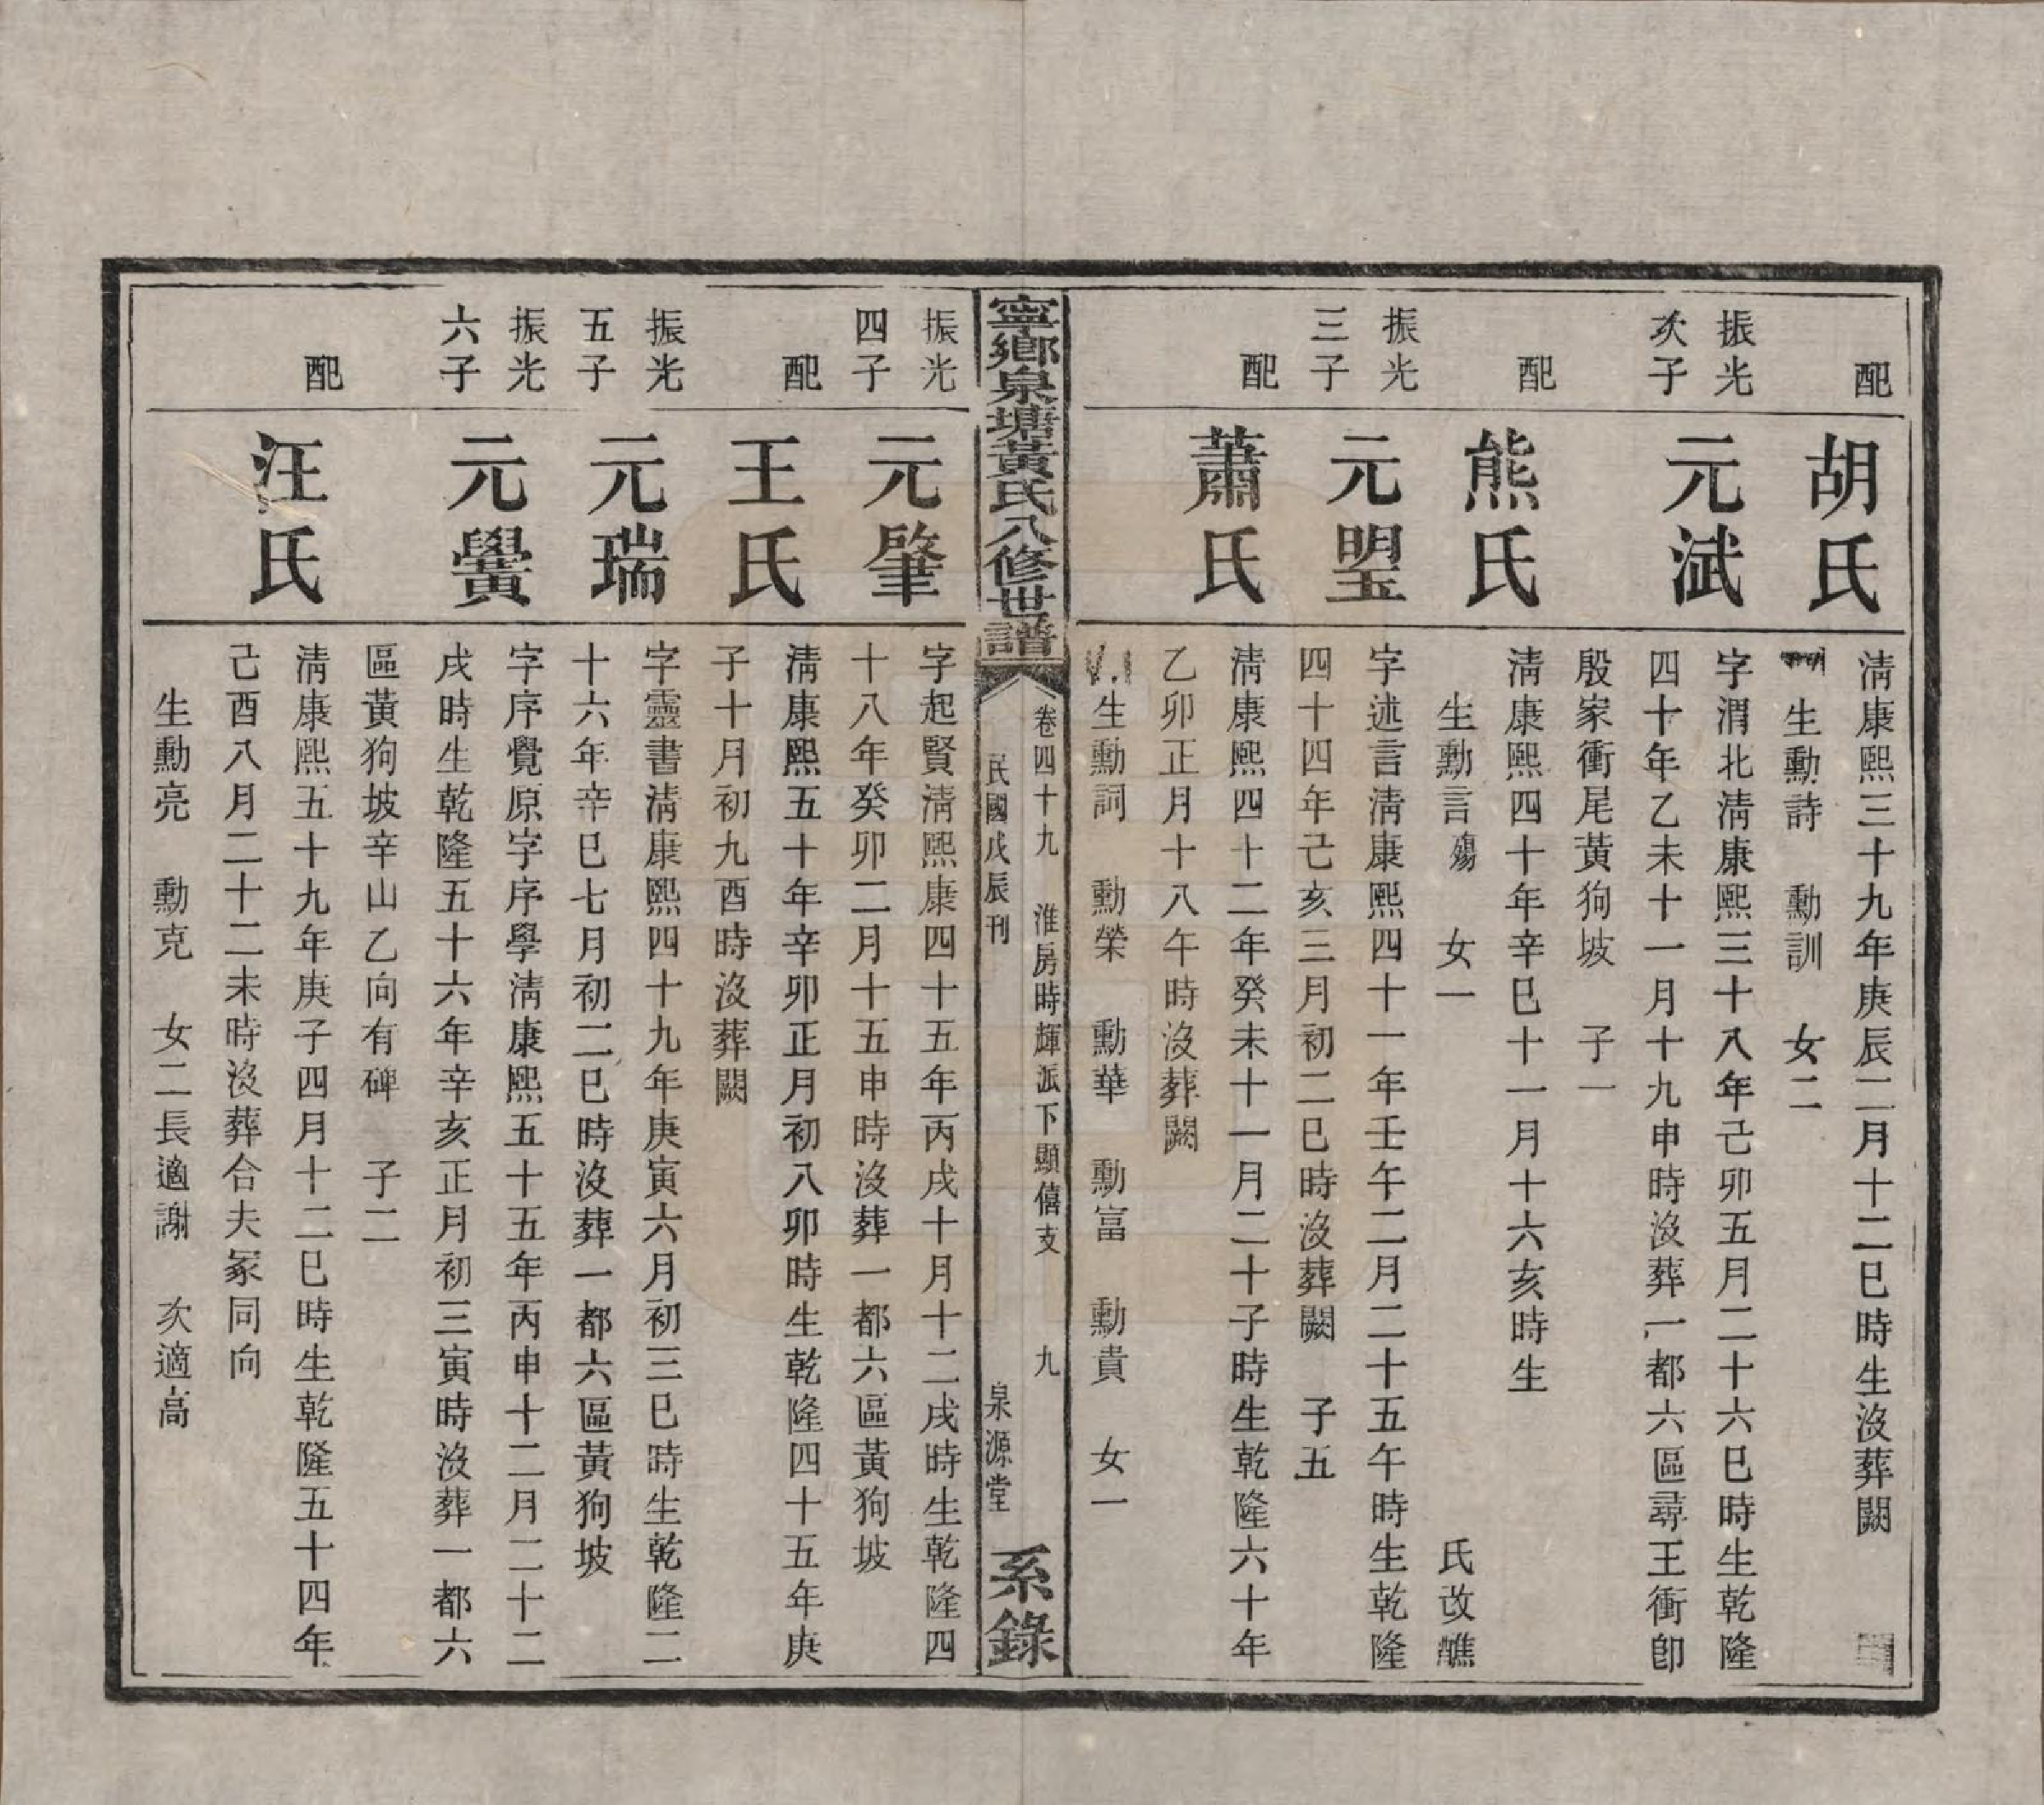 配
胡氏
淸康熙三十九年庚辰二月十二巳時生沒葬闕
生勳詩 勳訓 女二
振光
次子
元斌
字渭北淸康熙三十八年己卯五月二十六巳時生乾隆
四十年乙未十一月十九申時沒葬一都六區尋王衝卽
殷家衝尾黃狗坡 子一
配
熊氏
淸康熙四十年辛巳十一月十六亥時生
生勳言殤 女一 氏改醮
振光
三子
元琞
字述言淸康熙四十一年壬午二月二十五午時生乾隆
四十四年己亥三月初二巳時沒葬闕 子五
配
蕭氏
淸康熙四十二年癸未十一月二十子時生乾隆六十年
乙卯正月十八午時沒葬闕
生勳詞 勳榮 勳華 勳富 勳貴 女一
寧鄉泉塘黃氏八修世譜
卷四十九 淮房時輝派下顯僖支 九
民國戊辰刊 泉源堂
系錄
振光
四子
元肇
字起賢淸熙康四十五年丙戌十月十二戌時生乾隆四
十八年癸卯二月十五申時沒葬一都六區黃狗坡
配
王氏
淸康熙五十年辛卯正月初八卯時生乾隆四十五年庚
子十月初九酉時沒葬闕
振光
五子
元瑞
字靈書淸康熙四十九年庚寅六月初三巳時生乾隆二
十六年辛巳七月初二巳時沒葬一都六區黃狗坡
振光
六子
元黌
字序覺原字序學淸康熙五十五年丙申十二月二十二
戌時生乾隆五十六年辛亥正月初三寅時沒葬一都六
區黃狗坡辛山乙向有碑 子二
配
汪氏
淸康熙五十九年庚子四月十二巳時生乾隆五十四年
己酉八月二十二未時沒葬合夫冢同向
生勳亮 勳克 女二長適謝 次適高